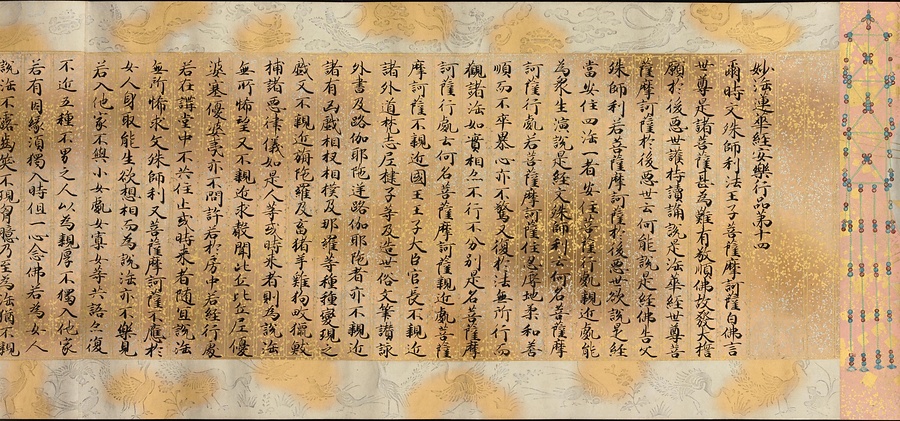 妙法蓮華經安樂行品第十四
爾時文殊師利法王子菩薩摩訶薩白佛言
世尊是諸菩薩甚為難有敬順佛故發大誓
願於後惡世護持讀誦說是法華經世尊菩
薩摩訶薩於後惡世云何能說是經佛告文
殊師利若菩薩摩訶薩於後惡世欲說是經
當安住四法一者安住菩薩行處親近處能
為眾生演說是經文殊師利云何名菩薩摩
訶薩行處若菩薩摩訶薩住忍辱地柔和善
順而不卒暴心亦不驚又復於法無所行而
觀諸法如實相亦不行不分別是名菩薩摩
訶薩行處云何名菩薩摩訶薩親近處菩薩
摩訶薩不親近國王王子大臣官長不親近
諸外道梵志尼揵子等及造世俗文筆讚詠
外書及路伽耶陀逆路伽耶陀者亦不親近
諸有凶戲相扠相撲及那羅等種種變現之
戲又不親近旃陀羅及畜猪羊雞狗畋獵漁
捕諸惡律儀如是人等或時來者則為說法
無所悕望又不親近求聲聞比丘比丘尼優
婆塞優婆夷亦不問訊若於房中若經行處
若在講堂中不共住止或時來者隨宜說法
無所悕求文殊師利又菩薩摩訶薩不應於
女人身取能生欲想相而為說法亦不樂見
若入他家不與小女處女寡女等共語亦復
不近五種不男之人以為親厚不獨入他家
若有因緣須獨入時但一心念佛若為女人
說法不露齒笑不現胸臆乃至為法猶不親